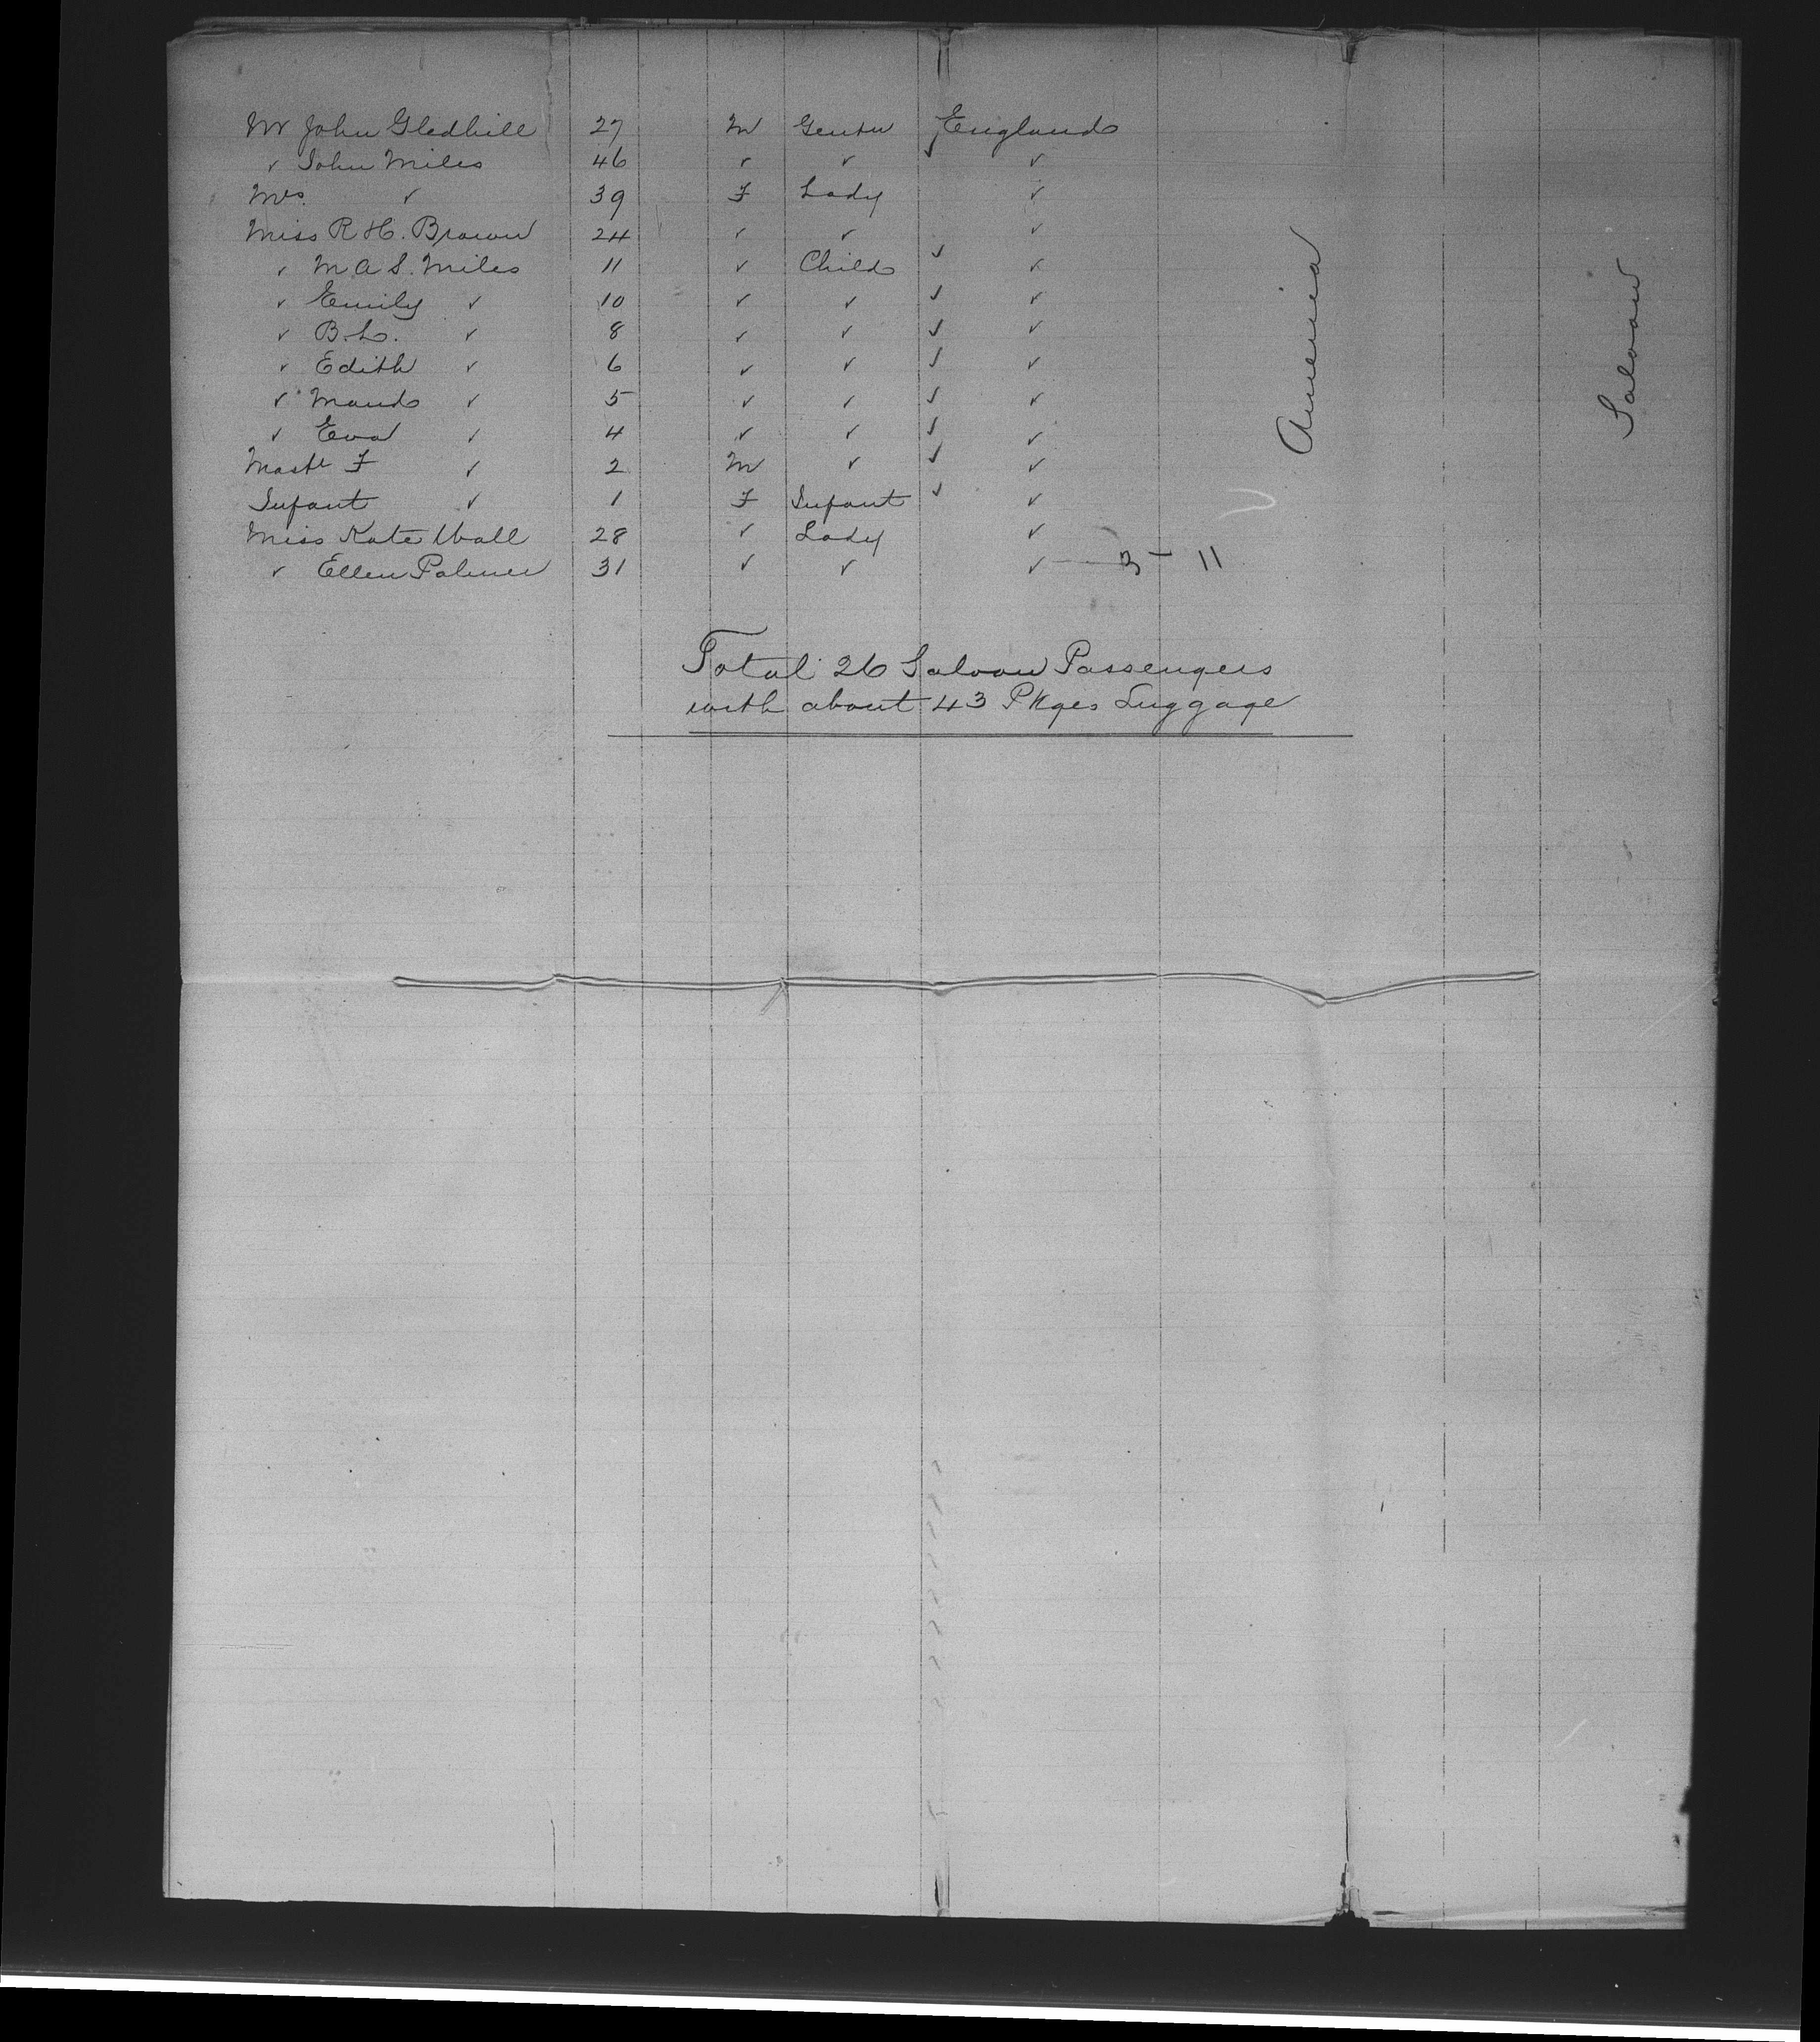 Mr John Gledhill 27 M Gentn England
" John Miles 46 " " "
Mrs. " 39 F Lady "
Miss R H. Brown 24 " " "
" M. A S. Miles 11 " Child "
" Emily " 10 " " "
" B. L. " 8 " " "
" Edith " 6 " " "
" Maud " 5 " " "
" Eva " 4 " " "
Mastr F " 2 M " "
Infant " 1 F Infant "
Miss Kate Wall 28 " Lady "
" Ellen Palmer 31 " " " 3 - 11
America
Saloon
Total 26 Saloon Passengers
with about 43 Pkges Luggage